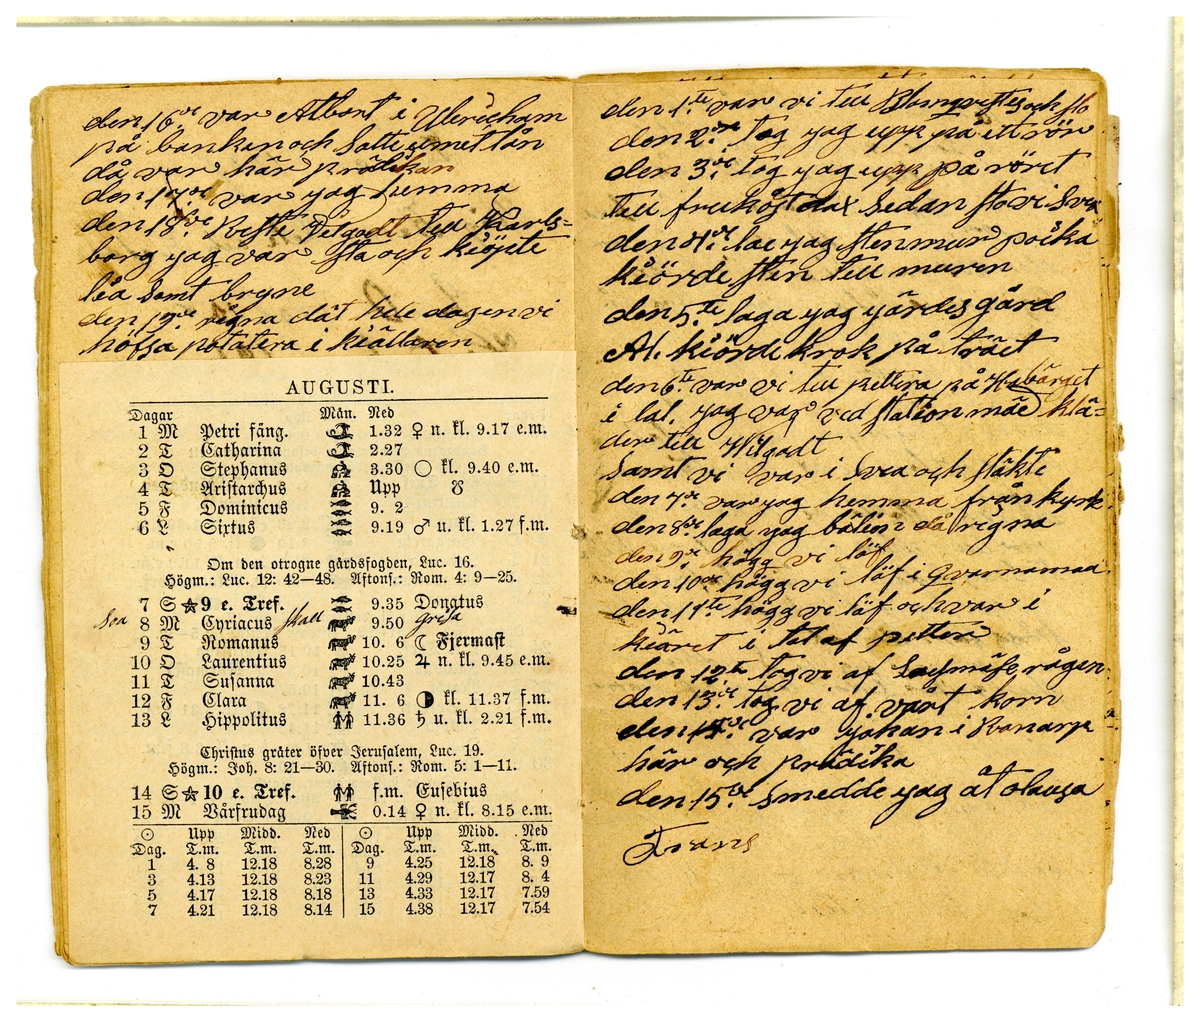 den 16de var Albert i Ulriceham
på banken och Satte umet lån
då var här prädikan
den 17de var yag hemma
den 18de Reste Petgadt till Karls-
borg yag var sta och kiöpte
lia samt bryne
den 19de rägna dät hele dagen vi
höfsa potatera i kiällaren
AUGUSTI.
Dagar Mån. Ned
1 M Petri fäng. 1.32 ♀ n. kl. 9.17 e.m.
2 T Catharina 2.27
3 O Stephanus 3.30 ○ kl. 9.40 e.m.
4 T Aristarchus Upp ☋
5 F Dominicus 9. 2
6 L Sixtus 9.19 ♂ u. kl. 1.27 f.m.
Om den otrogne gårdsfogden, Luc. 16.
Högm.: Luc. 12: 42—48. Aftons.: Rom. 4: 9—25.
7 S ☆ 9 e. Tref. 9.35 Donatus
Soa 8 M Cyriacus skall 9.50 grisa
9 T Romanus 10. 6 ☾ Fjermast
10 O Laurentius 10.25 ♃ n. kl. 9.45 e.m.
11 T Susanna 10.43
12 F Clara 11. 6 ◑ kl. 11.37 f.m.
13 L Hippolitus 11.36 ♄ u. kl. 2.21 f.m.
Christus gråter öfver Jerusalem, Luc. 19.
Högm.: Joh. 8: 21—30. Aftons.: Rom. 5: 1—11.
14 S ☆ 10 e. Tref. f.m. Eusebius
15 M Vårfrudag 0.14 ♀ n. kl. 8.15 e.m.
☉ Upp Midd. Ned ☉ Upp Midd. Ned
Dag. T.m. T.m. T.m. Dag. T.m. T.m. T.m.
1 4. 8 12.18 8.28 9 4.25 12.18 8. 9
3 4.13 12.18 8.23 11 4.29 12.17 8. 4
5 4.17 12.18 8.18 13 4.33 12.17 7.59
7 4.21 12.18 8.14 15 4.38 12.17 7.54
den 1.te var vi till Blomqvistes och slo
den 2.dre tog yag upp på ett rör
den 3.de tog yag upp på röret
till frukåst dax sedan slo vi i Svea
den 4.de lae yag stenmur poika
kiörde sten till muren
den 5.te laga yag yärdesgård
Al. kiörde krok på träet
den 6.te var vi till pettera på Habärget
i lal. yag var ved station mäe klä-
der till Hilgadt
samt vi var i Svea och släkte
den 7.de var yag hemma från kyrk
den 8de laga yag båtion då regna
den 9.de högg vi löf
den 10de högg vi löf i Qvarnamaa
den 11.te högg vi löf och var i
kiäret i tel af petter
den 12.te tog vi af rågen
den 13.de tog vi af vårt korn
den 14.de var yohan i Ronarp
här och prädika
den 15.de smedde yag åt olausa
Frans